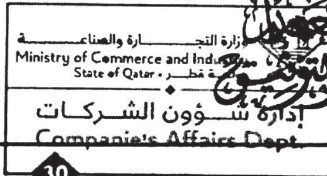 وزارة التجـــــارة والصناعـــــــة
Ministry of Commerce and Industry
State of Qatar • دولة قطـــر
إدارة شـــؤون الشـــركـــات
Companie's Affairs Dept.
30